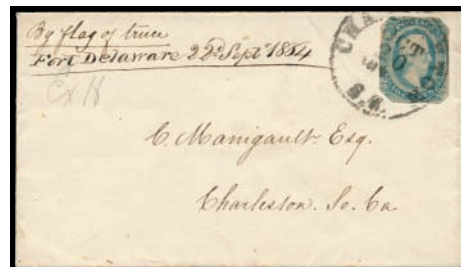 By flag of truce
Fort Delaware 22d Sept 1864
Ex H
C. Manigault. Esq.
Charleston. So. Ca.